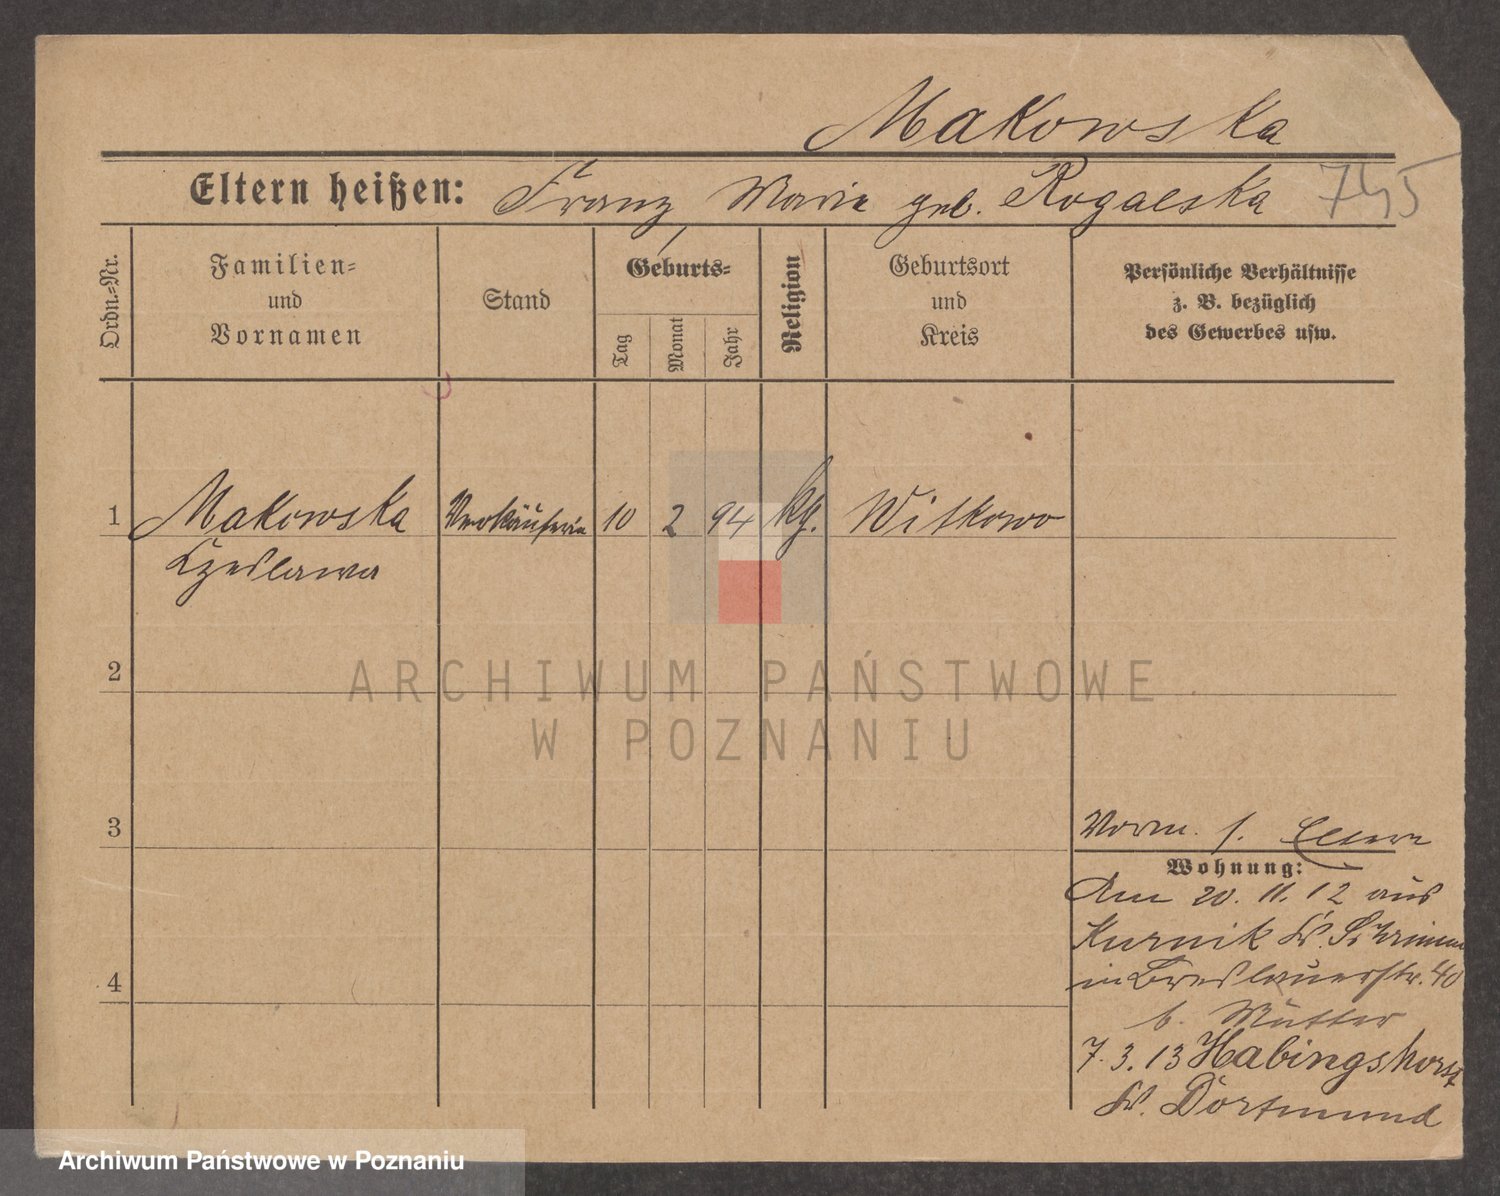 Makowska
Eltern heißen: Franz, Marie geb. Rogalska 745
Ordn.=Nr.
Familien=
und
Vornamen
Stand
Geburts=
Tag
Monat
Jahr
Religion
Geburtsort
und
Kreis
Persönliche Verhältnisse
z. B. bezüglich
des Gewerbes usw.
1 Makowska Verkäuferin 10 2 94 kg. Witkowo
Czeslawa
2
ARCHIWUM PAŃSTWOWE
W POZNANIU
3
Vorm. s. Eltern
Wohnung:
Am 20. 11. 12 aus
Kurnik Kr. Schrimm
in Breslauerstr. 40
4
b. Mutter
7. 3. 13 Habingshorst
Kr. Dortmund
Archiwum Państwowe w Poznaniu